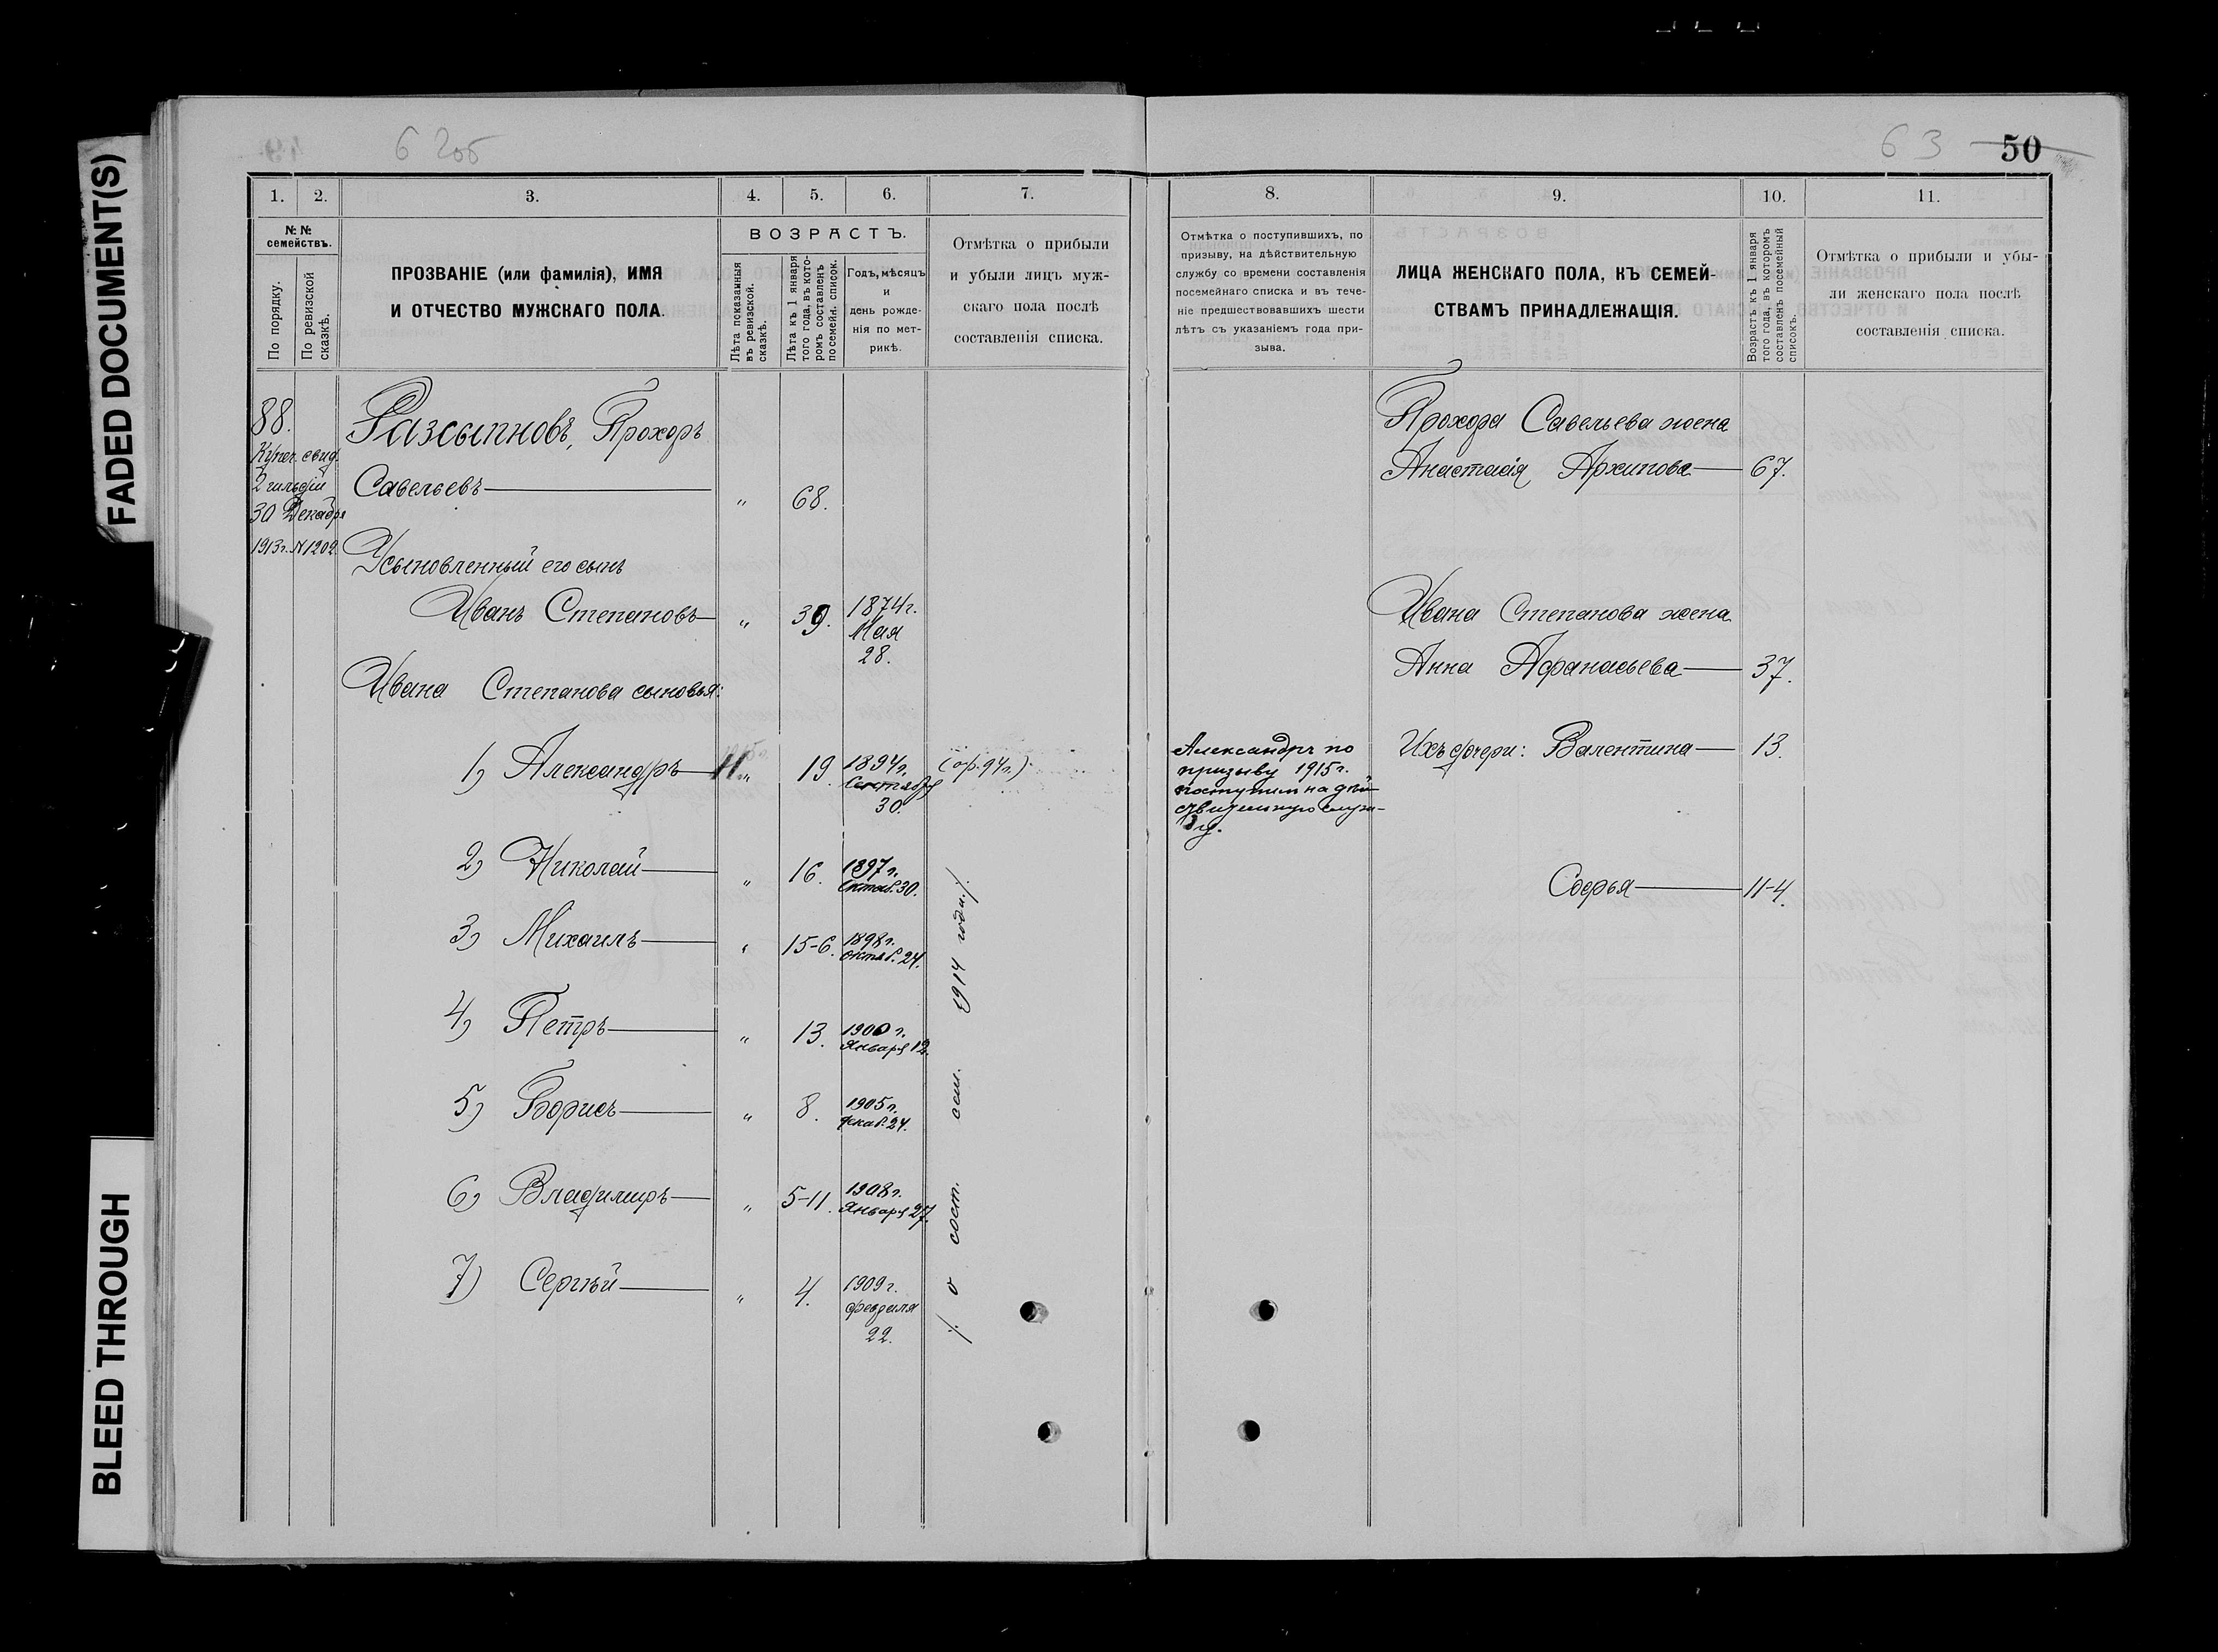 FADED DOCUMENT(S)
BLEED THROUGH
62об
63 50
1. 2. 3. 4. 5. 6. 7.
№ №
семействъ.
По порядку.
По ревизской
сказкѣ.
ПРОЗВАНІЕ (или фамилія), ИМЯ
И ОТЧЕСТВО МУЖСКАГО ПОЛА.
ВОЗРАСТЪ.
Лѣта показанныя
въ ревизской
сказкѣ.
Лѣта къ 1 января
того года, въ кото-
ромъ составленъ
посемейн. список.
Годъ, мѣсяцъ
и
день рожде-
нія по мет-
рикѣ.
Отмѣтка о прибыли
и убыли лицъ муж-
скаго пола послѣ
составленія списка.
88.
Купеч. свид.
2 гильдіи
30 Декабря
1913г. №1202
Разсыпновъ, Прохоръ
Савельевъ — " 68.
Усыновленный его сынъ
Иванъ Степановъ — " 39. 1874г.
Мая
28.
Ивана Степанова сыновья:
1) Александръ — 11 " 19. 1894г. (ор.94г.)
Сентября
30.
2) Николай — " 16. 1897г.
Октяб. 30.
3) Михаилъ — " 15-6. 1898г.
Октяб. 24.
4) Петръ — " 13. 1900г.
Января 12.
5) Борисъ — " 8. 1905г.
Декаб. 24.
6) Владимиръ — " 5-11. 1908г.
Января 27.
7) Сергѣй — " 4. 1909г.
февраля
22.
о сост. 1914 года
8. 9. 10. 11.
Отмѣтка о поступившихъ, по
призыву, на дѣйствительную
службу со времени составленія
посемейнаго списка и въ тече-
ніе предшествовавшихъ шести
лѣтъ съ указаніемъ года при-
зыва.
ЛИЦА ЖЕНСКАГО ПОЛА, КЪ СЕМЕЙ-
СТВАМЪ ПРИНАДЛЕЖАЩІЯ.
Возрастъ къ 1 января
того года, въ которомъ
составленъ посемейный
списокъ.
Отмѣтка о прибыли и убы-
ли женскаго пола послѣ
составленія списка.
Прохора Савельева жена
Анастасія Архипова — 67.
Ивана Степанова жена
Анна Афанасьева — 37.
Александръ по
призыву 1915г.
поступил на дѣй-
ствительную служ-
бу.
Ихъ дочери: Валентина — 13.
Софья — 11-4.